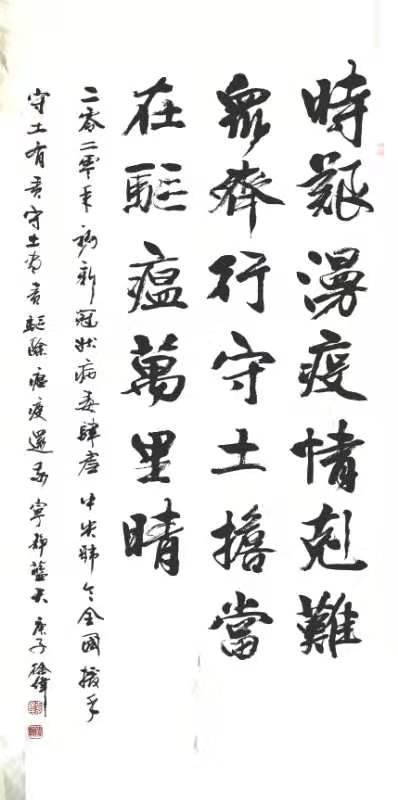 時艱湯疫情剋難
眾齊行守土擔當
在駈瘟萬里晴
二零二零年 新冠狀病毒肆虐 中央 令全國援手
守土有責守土盡責駈除瘟疫還我寧靜藍天 庚子 徐偉